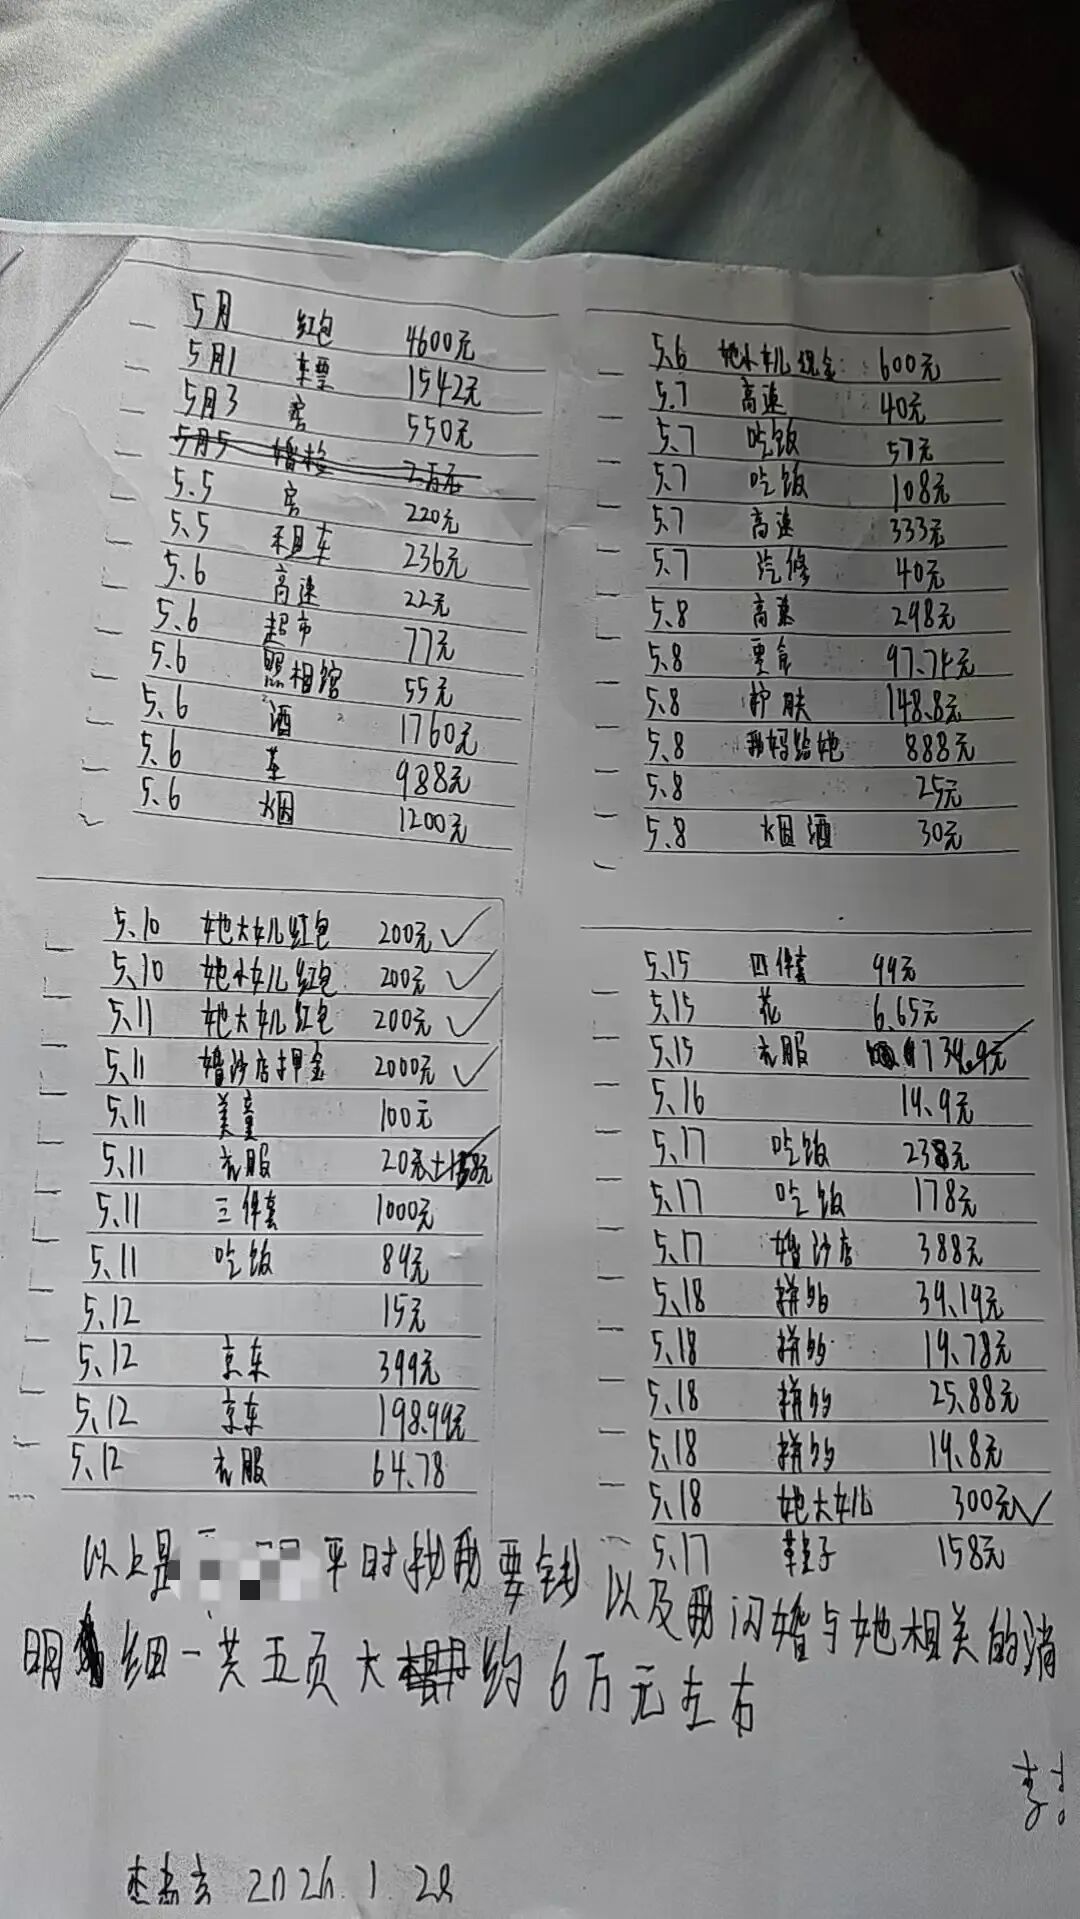 5月 红包 4600元
5月1 车票 1542元
5月3 房 550元
5月5 2万元
5.5 房 220元
5.5 租车 236元
5.6 高速 22元
5.6 超市 77元
5.6 照相馆 55元
5.6 酒 1760元
5.6 茶 988元
5.6 烟 1200元
5.6 她小女儿现金 600元
5.7 高速 40元
5.7 吃饭 57元
5.7 吃饭 108元
5.7 高速 333元
5.7 汽修 40元
5.8 高速 298元
5.8 零食 97.74元
5.8 护肤 148.8元
5.8 我妈给她 888元
5.8 25元
5.8 烟酒 30元
5.10 她大女儿红包 200元✓
5.10 她小女儿红包 200元✓
5.11 她大女儿红包 200元✓
5.11 婚沙店押金 2000元✓
5.11 美童 100元
5.11 衣服
5.11 三件套 1000元
5.11 吃饭 84元
5.12 15元
5.12 京东 399元
5.12 京东 198.99元
5.12 衣服 64.78
5.15 四件套 99元
5.15 花 6.65元
5.15 衣服
5.16 14.9元
5.17 吃饭 238元
5.17 吃饭 178元
5.17 婚沙店 388元
5.18 拼多 39.19元
5.18 拼多 19.78元
5.18 拼多 25.88元
5.18 拼多 14.8元
5.18 她大女儿 300元✓
5.17 鞋子 158元
以上是 平时找我要钱 以及我闪婚与她相关的消
明细一共五页大 约6万元左右
2026.1.28